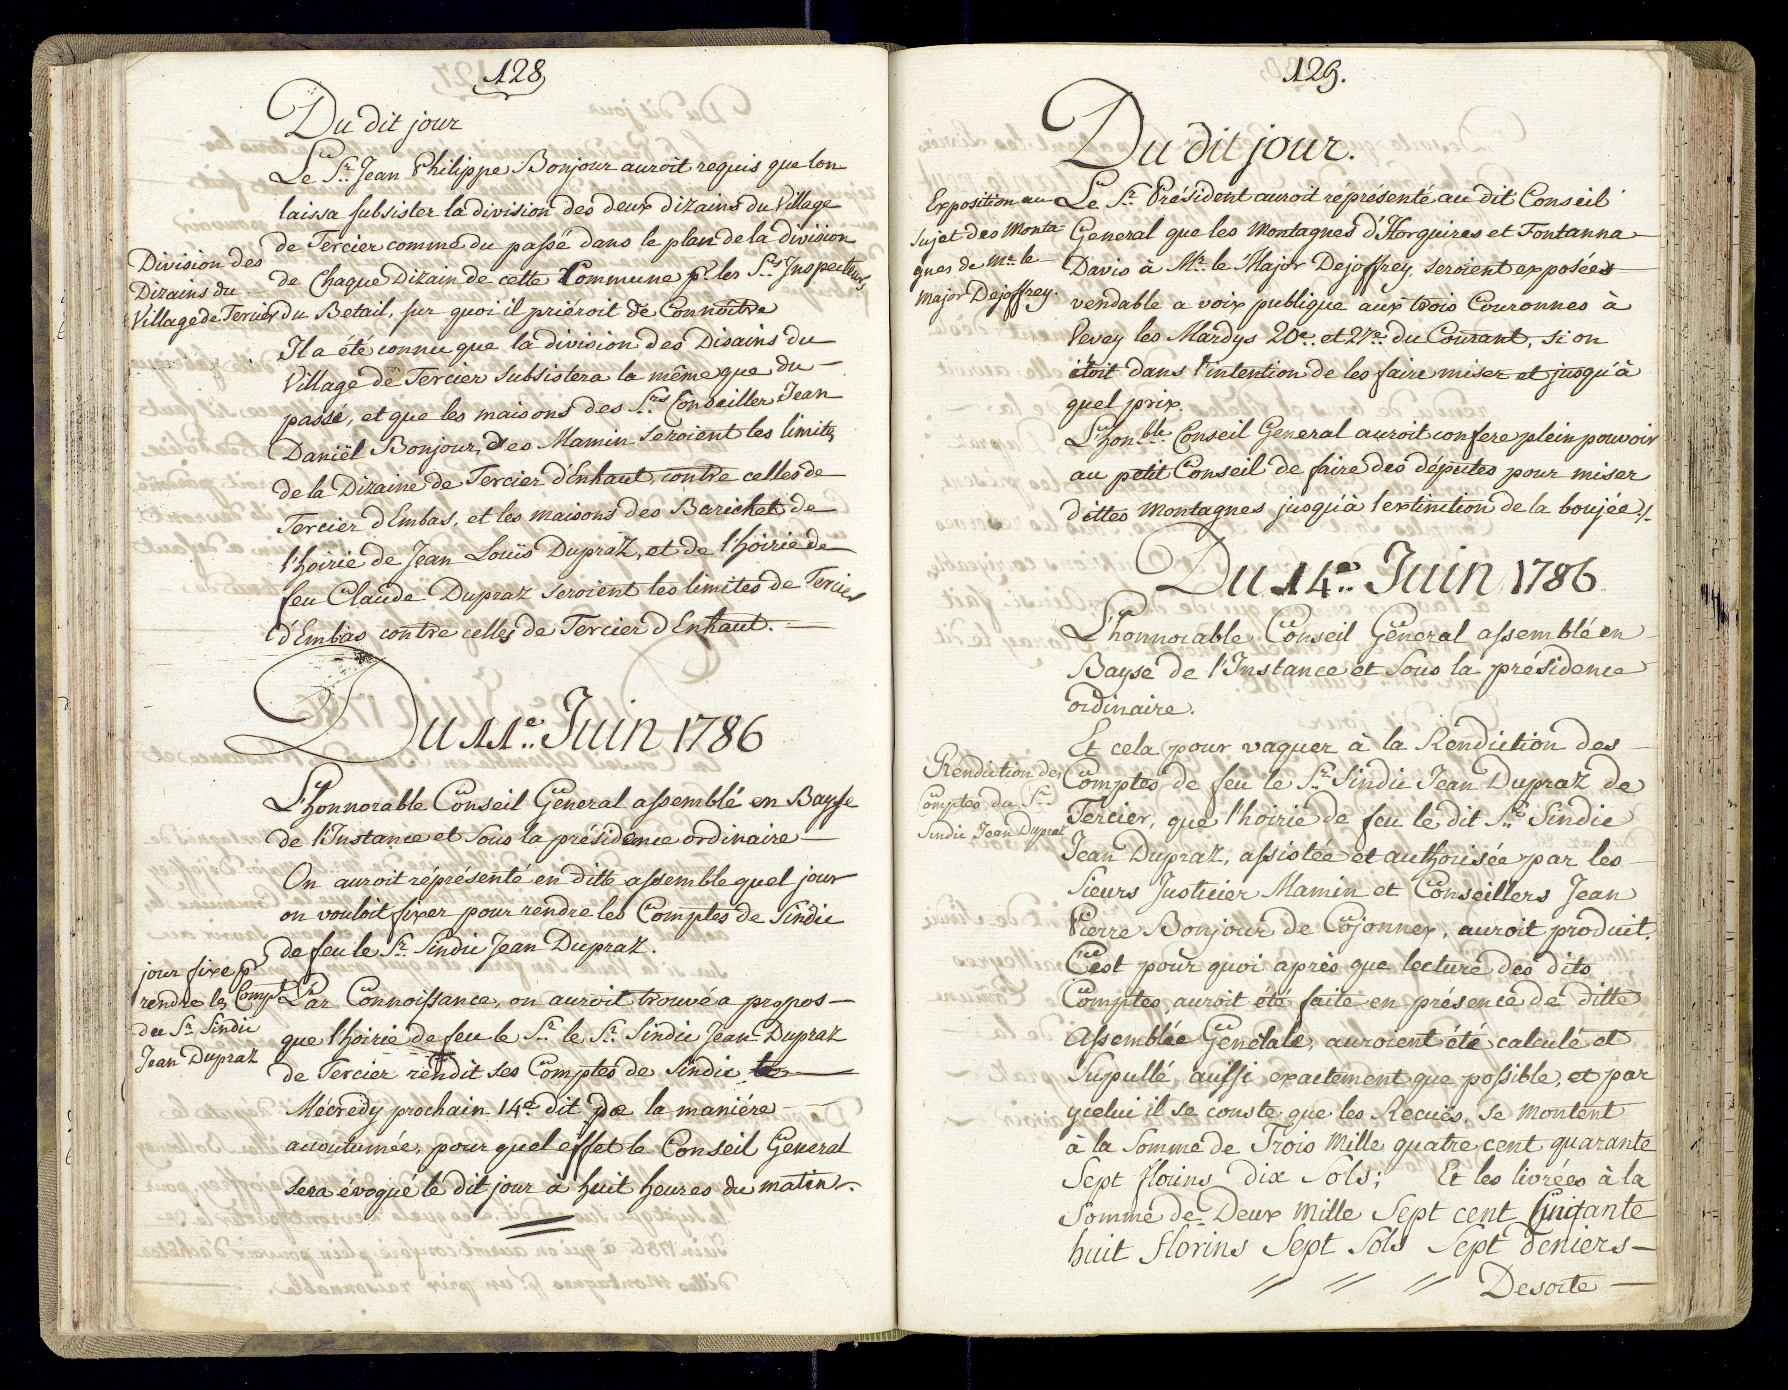 128
Du dit jour
Le Sr. Jean Philippe Bonjour auroit requis que lon
laissa subsister la division des deux dizains du Village
de Tercier comme du passé dans le plan de la division
Division des
Dizains du
Village de Tercier
de Chaque Dizain de cette Commune pr. les Srs Inspecteurs
du Betail, sur quoi il priéroit de Connoitre
Il a été connu que la division des Disains du
Village de Tercier subsistera la même que du
passé, et que les maisons des Srs. Conseiller Jean
Daniël Bonjour, des Mamin seroient les limites
de la Dizaine de Tercier d'Enhaut, contre celles de
Tercier d'Embas, et les maisons des Barichet, de
l'hoirie de Jean Louïs Dupraz, et de l'hoirie de
feu Claude Dupraz seroient les limites de Tercier
d'Embas contre celles de Tercier d'Enhaut.
Du 11e. Juin 1786
L'honnorable Conseil General assemblé en Baysse
de l'Instance et sous la présidence ordinaire
On auroit réprésenté en ditte assemble quel jour
on vouloit fixer pour rendre les Comptes de Sindic
de feu le Sr. Sindic Jean Dupraz.
jour fixe pr
rendre les Compt
du Sr. Sindic
Jean Dupraz
Par Connoissance, on auroit trouvé a propos
que l'hoirie de feu le Sr. le Sr. Sindic Jean Dupraz
de Tercier rendit ses Comptes de Sindic
Mécredy prochain 14e dit de la maniére
accoutumée, pour quel effet le Conseil General
sera évoqué le dit jour à huit heures du matin.
129.
Du dit jour.
Exposition au
sujet des Monta=
gnes de Mr. le
Major Dejoffrey.
Le Sr. Président auroit réprésenté au dit Conseil
General que les Montagnes d'Horguires et Fontanna
Davis à Mr. le Major Dejoffrey, seroient exposées
vendable a voix publique aux trois Couronnes à
Vevey les Mardys 20e. et 27e. du Courant, si on
étoit dans l'intention de les faire miser et jusqu'à
quel prix.
L'honble. Conseil General auroit confere plein pouvoir
au petit Conseil de faire des députes pour miser
dittes Montagnes jusqu'à lextinction de la boujée ./.
Du 14e. Juin 1786
L'honnorable Conseil General assemblé en
Bayse de l'Instance et sous la présidence
ordinaire.
Et cela pour vaquer à la Rendiction des
Rendiction des
Comptes du Sr.
Sindic Jean Dupraz
Comptes de feu le Sr. Sindic Jean Dupraz de
Tercier, que l'hoirie de feu le dit Sr. Sindic
Jean Dupraz, assistée et authorisée par les
Sieurs Justicier Mamin et Conseillers Jean
Pierre Bonjour de Cojonnex, auroit produit.
C'est pour quoi après que lecture des dits
Comptes, auroit été faite en présence de ditte
Assemblée Genérale, auroient été calculé et
Supullé, aussi exactement que possible, et par
ycelui il se conste que les Recuës, se montent
à la somme de Trois Mille quatre cent quarante
Sept florins dix sols; Et les livrées à la
somme de Deux Mille Sept cent Cinqtante
huit florins Sept Sols Sept deniers
Desorte